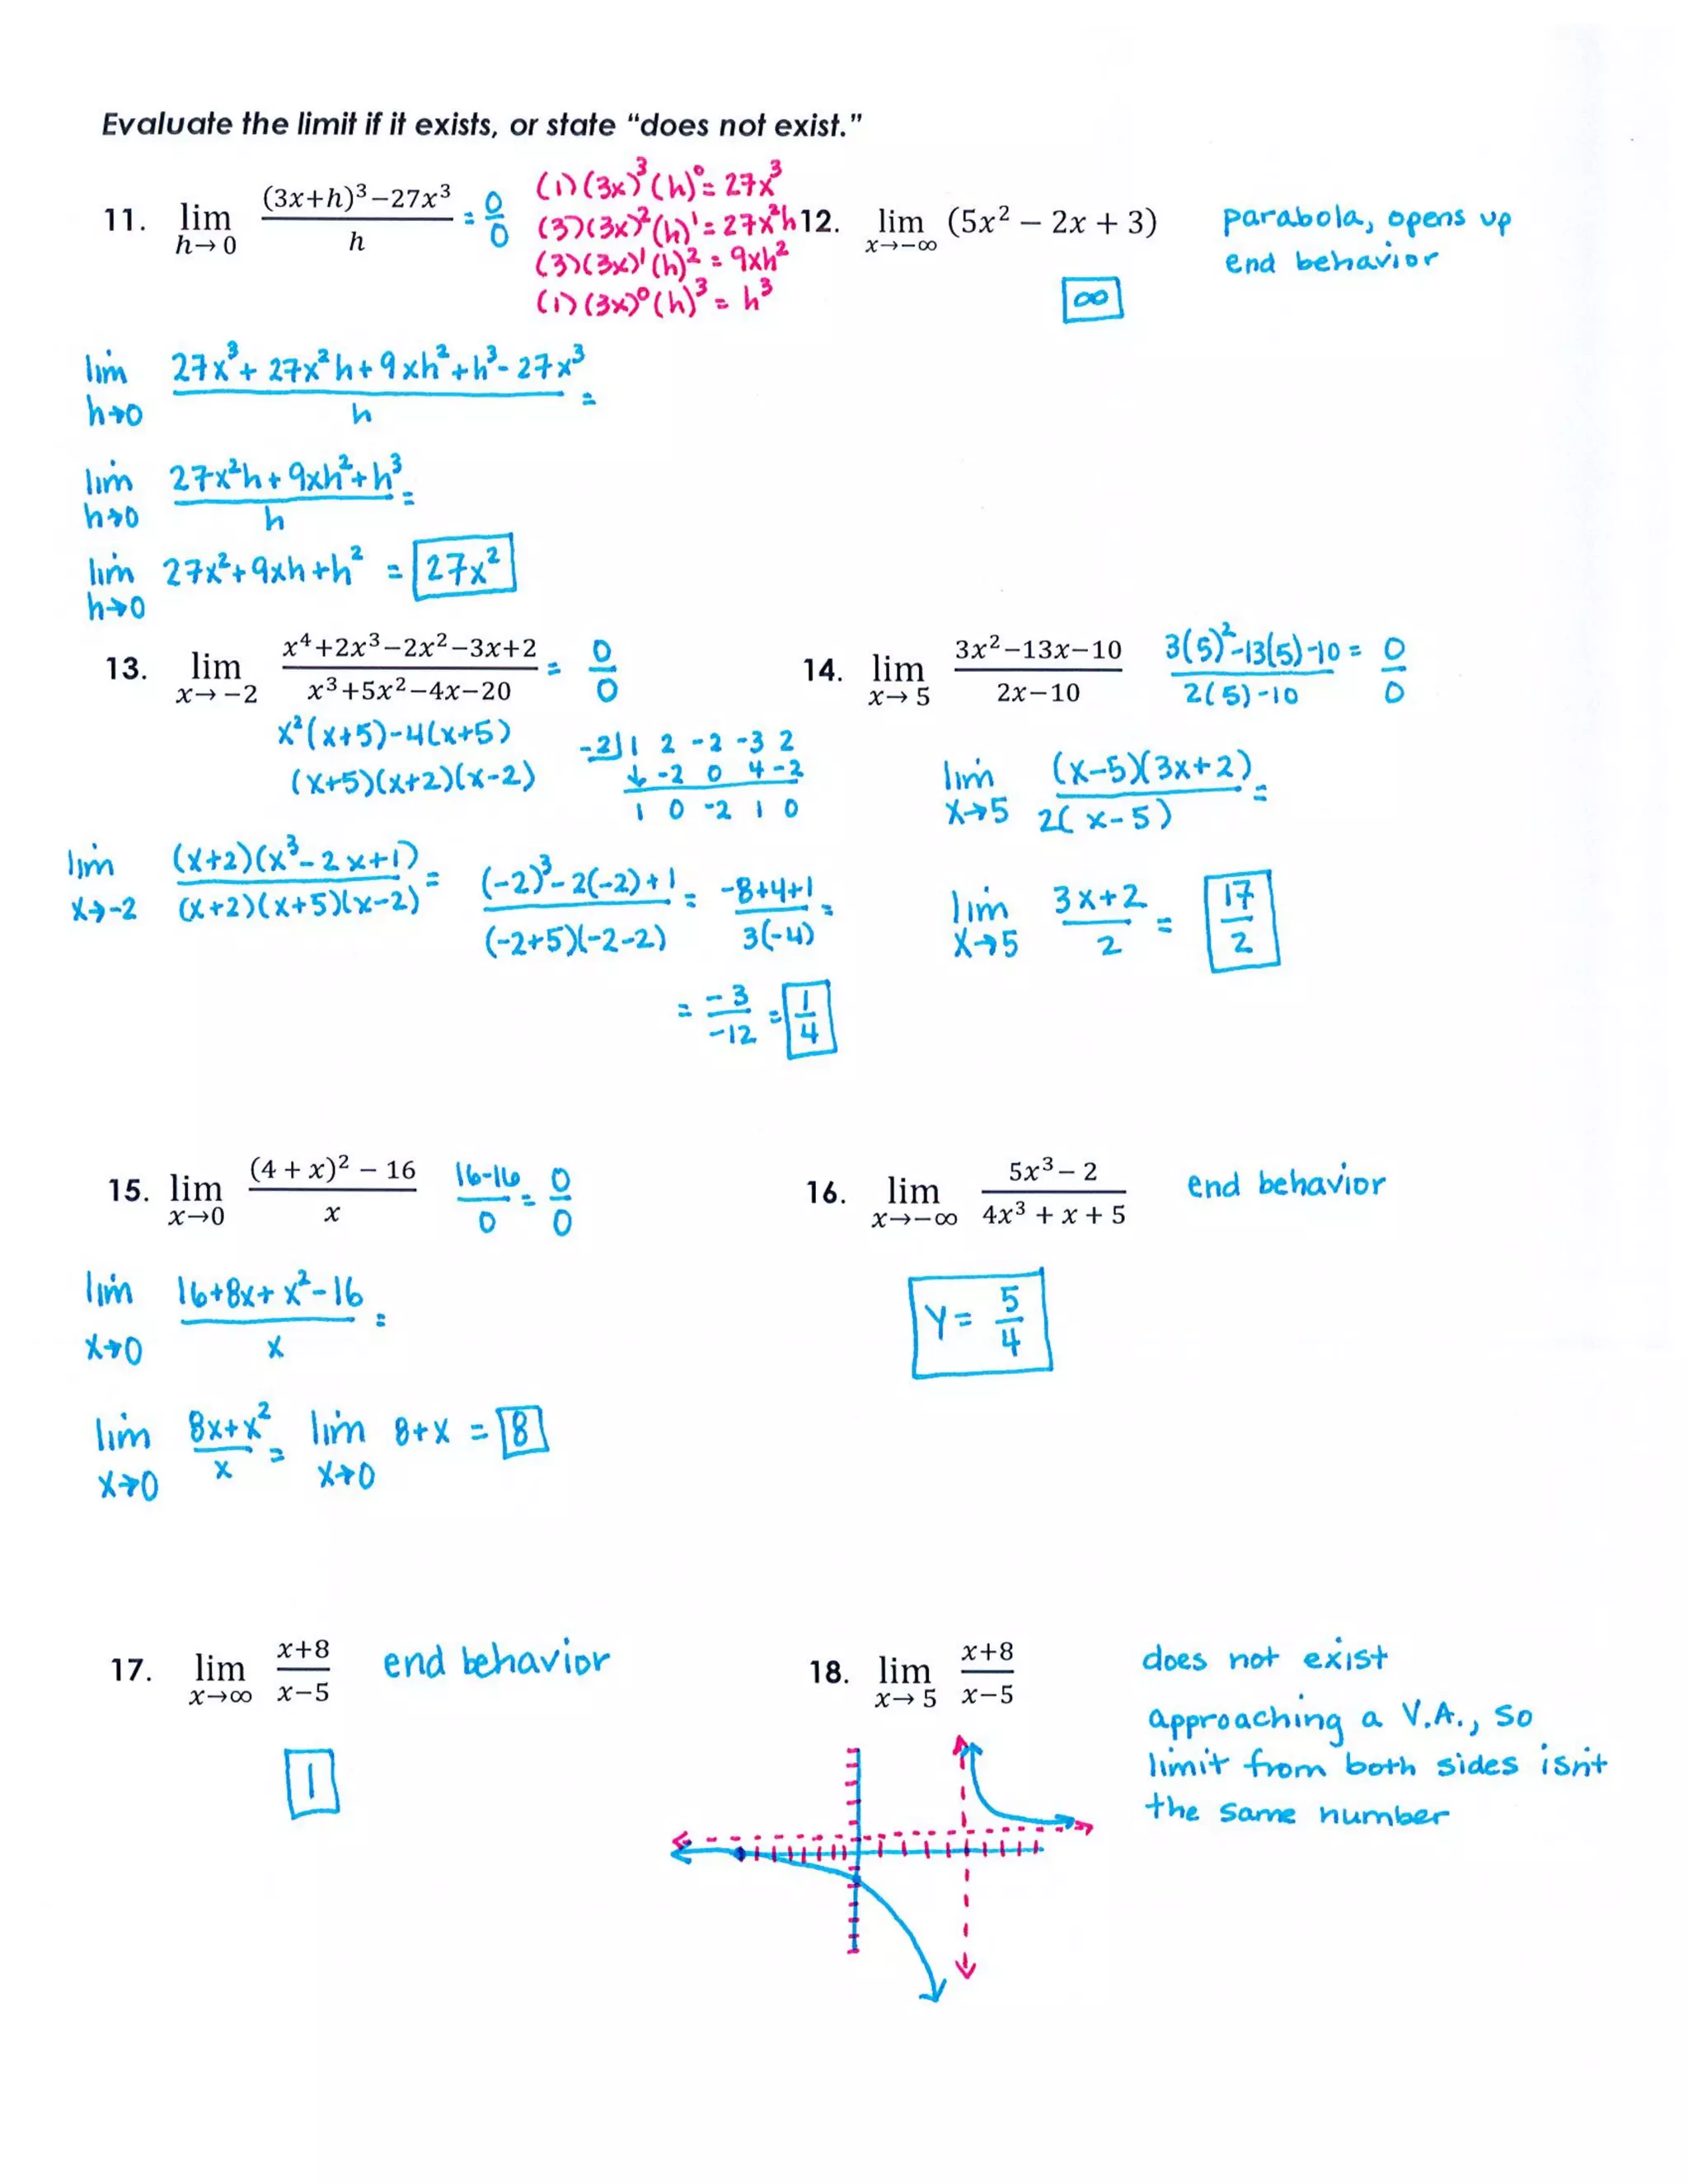 Evaluate the limit if it exists, or state “does not exist.”
11. lim h→0 (3x+h)³−27x³ / h = 0/0
(1)(3x)³(h)⁰= 27x³
(3)(3x)²(h)¹= 27x²h
(3)(3x)¹(h)² = 9xh²
(1)(3x)⁰(h)³ = h³
lim h→0 27x³+ 27x²h+9xh²+h³-27x³ / h =
lim h→0 27x²h+9xh²+h³ / h =
lim h→0 27x²+9xh+h² = 27x²
12. lim x→−∞ (5x² − 2x + 3)
parabola, opens up
end behavior
∞
13. lim x→−2 x⁴+2x³−2x²−3x+2 / x³+5x²−4x−20 = 0/0
x²(x+5)-4(x+5)
(x+5)(x+2)(x-2)
-2| 1 2 -2 -3 2
↓ -2 0 4 -2
1 0 -2 1 0
lim x→-2 (x+2)(x³-2x+1) / (x+2)(x+5)(x-2) = (-2)³-2(-2)+1 / (-2+5)(-2-2) = -8+4+1 / 3(-4) =
= -3/-12 = 1/4
14. lim x→5 3x²−13x−10 / 2x−10
3(5)²-13(5)-10 / 2(5)-10 = 0/0
lim x→5 (x-5)(3x+2) / 2(x-5) =
lim x→5 3x+2 / 2 = 17/2
15. lim x→0 (4 + x)² − 16 / x
16-16 / 0 = 0/0
lim x→0 16+8x+x²-16 / x =
lim x→0 8x+x² / x = lim x→0 8+x = 8
16. lim x→−∞ 5x³ − 2 / 4x³ + x + 5
end behavior
Y = 5/4
17. lim x→∞ x+8 / x−5
end behavior
1
18. lim x→5 x+8 / x−5
does not exist
approaching a V.A., so
limit from both sides isn't
the same number